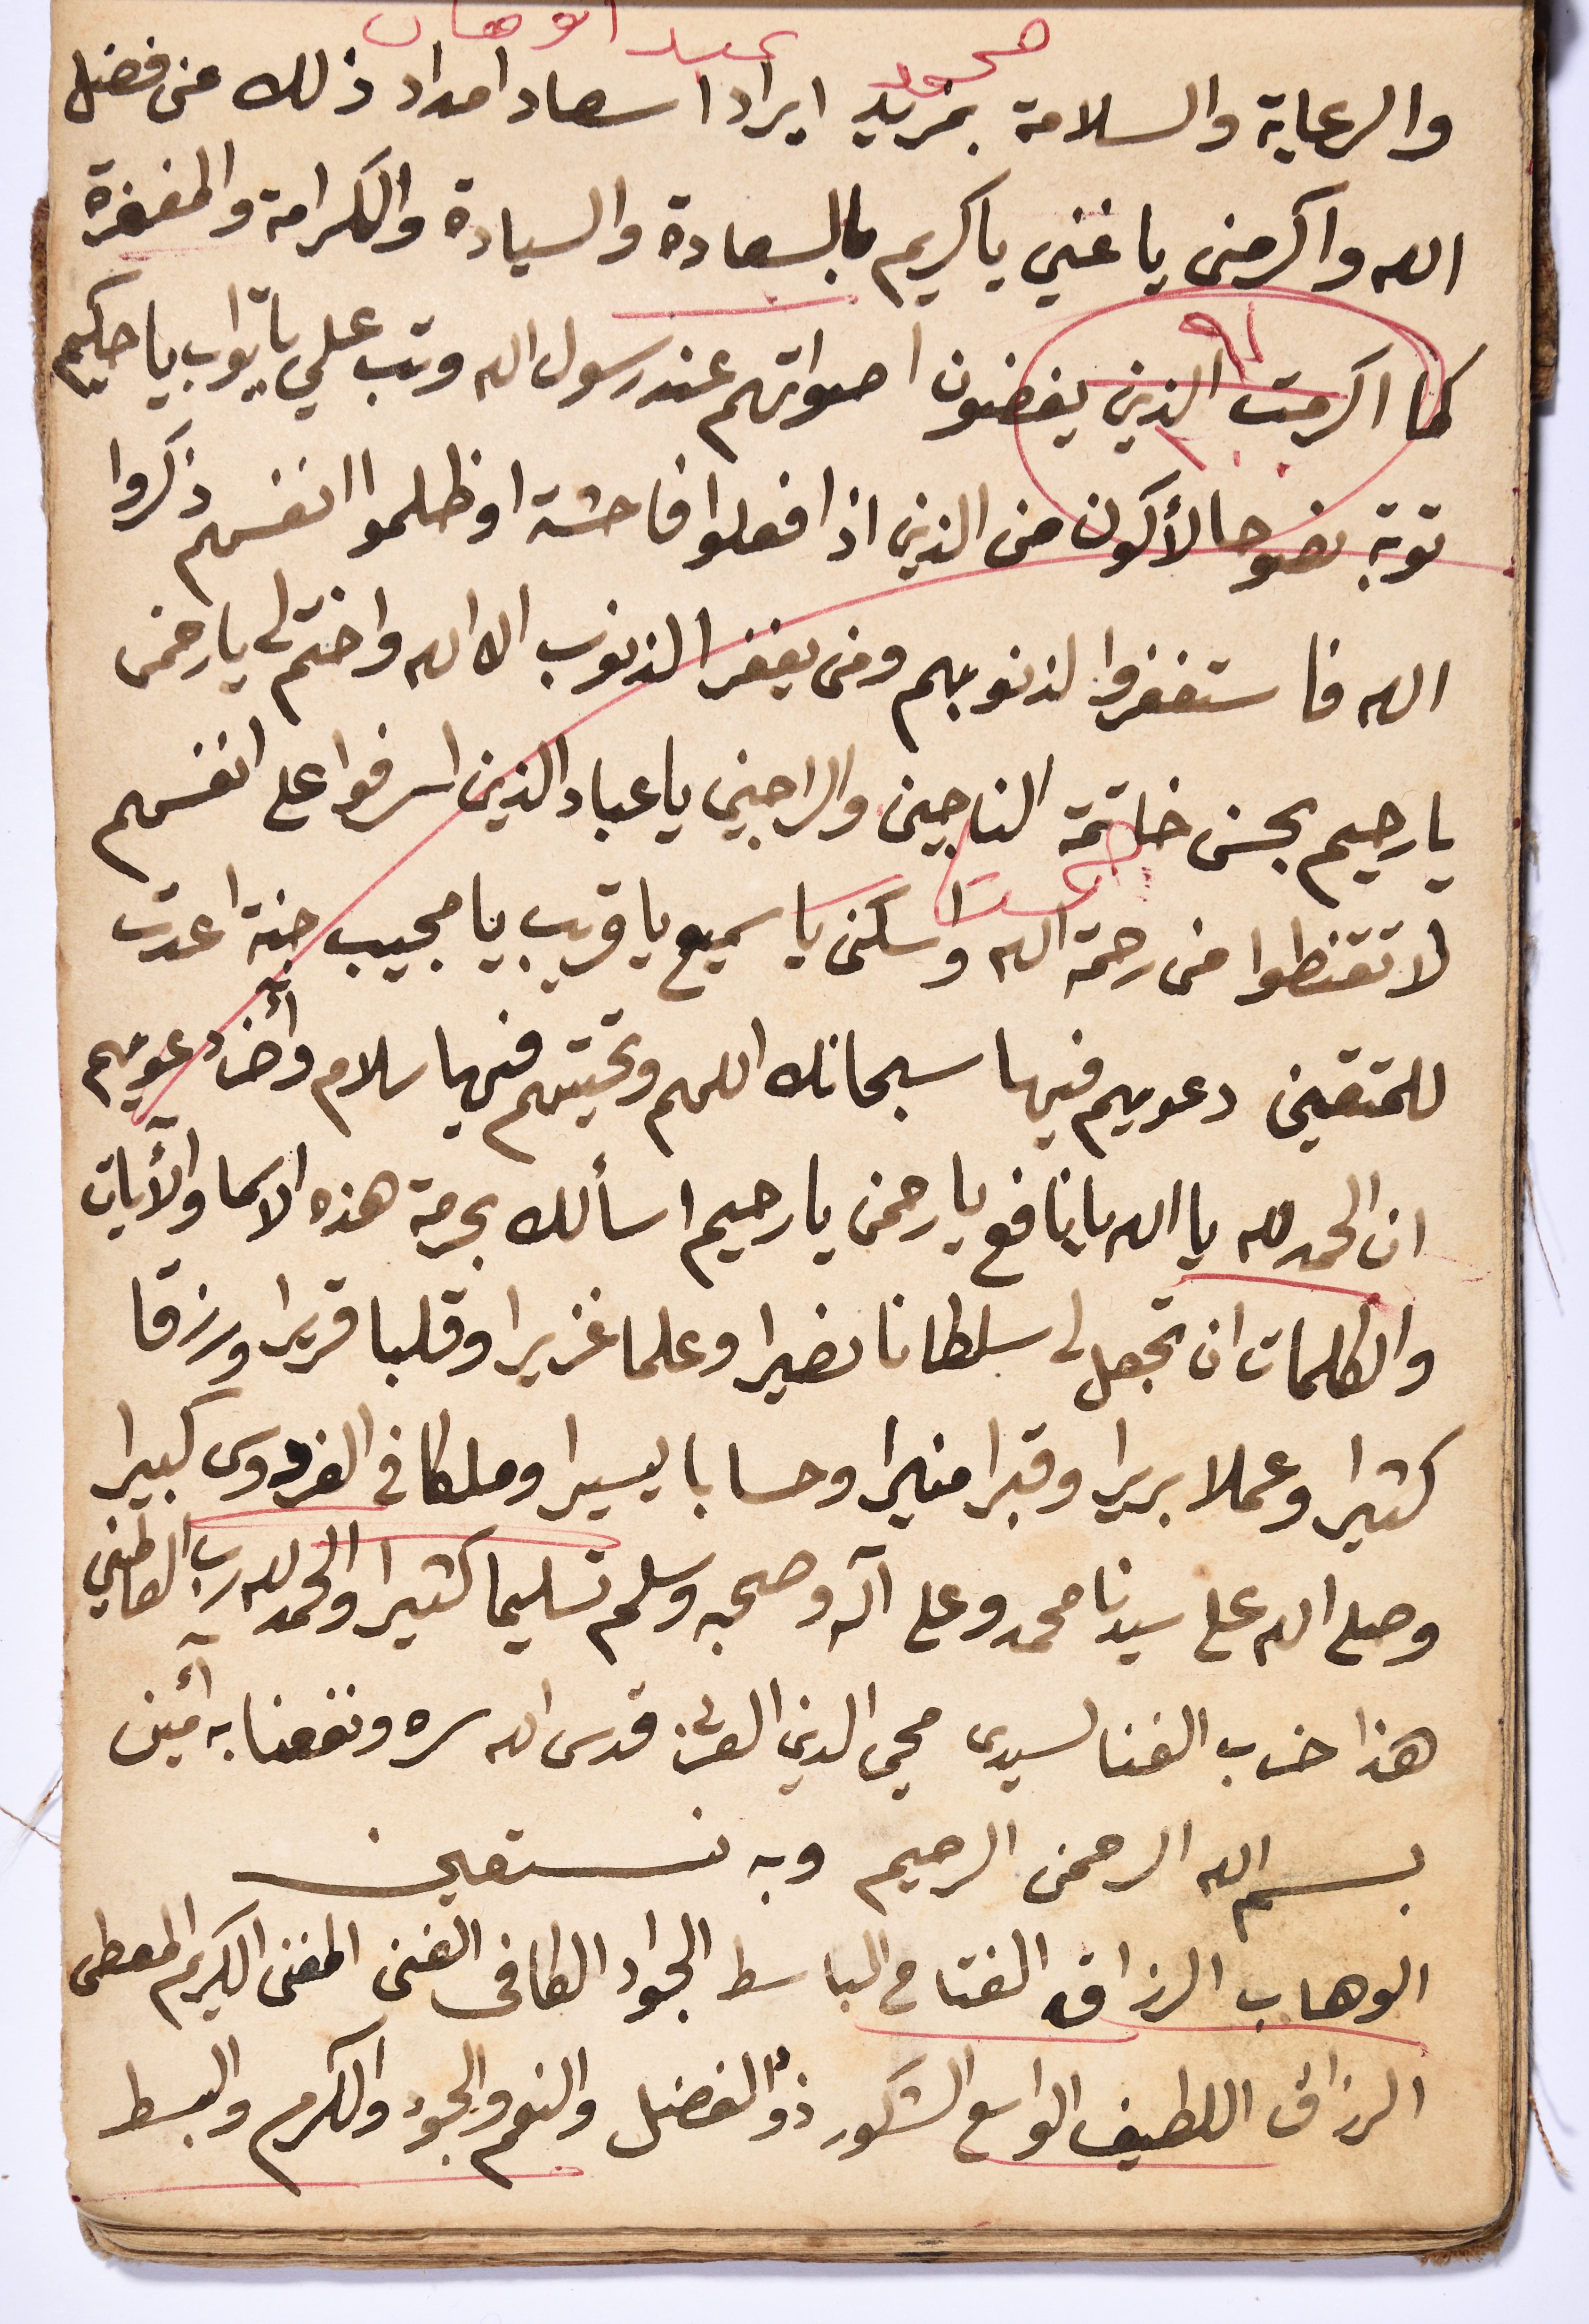 محمود عبد الوهاب
والرعاية والسلامة بمزيد ايراد اسعاد امداد ذلك من فضل
الله واكرمنى يا غني يا كريم بالسعادة والسيادة والكرامة والمغفرة
كما اكرمت الذين يغضون اصواتهم عند رسول الله وتب علي يا تواب يا حكيم
توبة نصوحا لأكون من الذين اذا فعلوا فاحشة او ظلموا انفسهم ذكروا
الله فاستغفروا لذنوبهم ومن يغفر الذنوب الا الله واختم لى يا رحمن
يا رحيم بحسن خاتمة الناجين والراجين يا عباد الذين اسرفوا على انفسهم
لا تقنطوا من رحمة الله واسكنى يا سميع يا قريب يا مجيب جنة اعدت
للمتقين دعويهم فيها سبحانك اللهم وتحيتهم فيها سلام وأخر دعويهم
ان الحمد لله يا الله يا نافع يا رحمن يا رحيم اسألك بحرمة هذه الاسما والأيات
والكلمات ان تجعل لى سلطانا نصيرا وعلما غزيرا وقلبا قريرا ورزقا
كثيرا وعملا بريرا وقبرا منيرا وحسابا يسيرا وملكا فى الفردوس كبيرا
وصلى الله على سيدنا محمد وعلى آله وصحبه وسلم تسليما كثيرا والحمد لله رب العالمين
هذا حزب الغنا لسيدى محي الدين العربى قدس الله سره ونفعنا به أمين
بسم الله الرحمن الرحيم وبه نستعين
الوهاب الرزاق الفتاح الباسط الجواد الكافى الغنى المغنى الكريم المعطى
الرزاق اللطيف الواسع الشكور ذو الفضل والنعم والجود والكرم والبسط